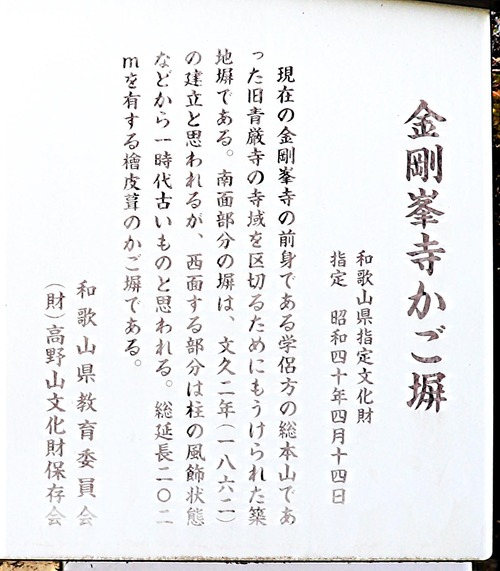 金剛峯寺かご塀
和歌山県指定文化財
指定　昭和四十年四月十四日
現在の金剛峯寺の前身である学侶方の総本山であ
った旧青巌寺の寺域を区切るためにもうけられた築
地塀である。南面部分の塀は、文久二年(一八六二)
の建立と思われるが、西面する部分は柱の風飾状態
などから一時代古いものと思われる。総延長二〇二
mを有する檜皮葺のかご塀である。
和歌山県教育委員会
(財)高野山文化財保存会